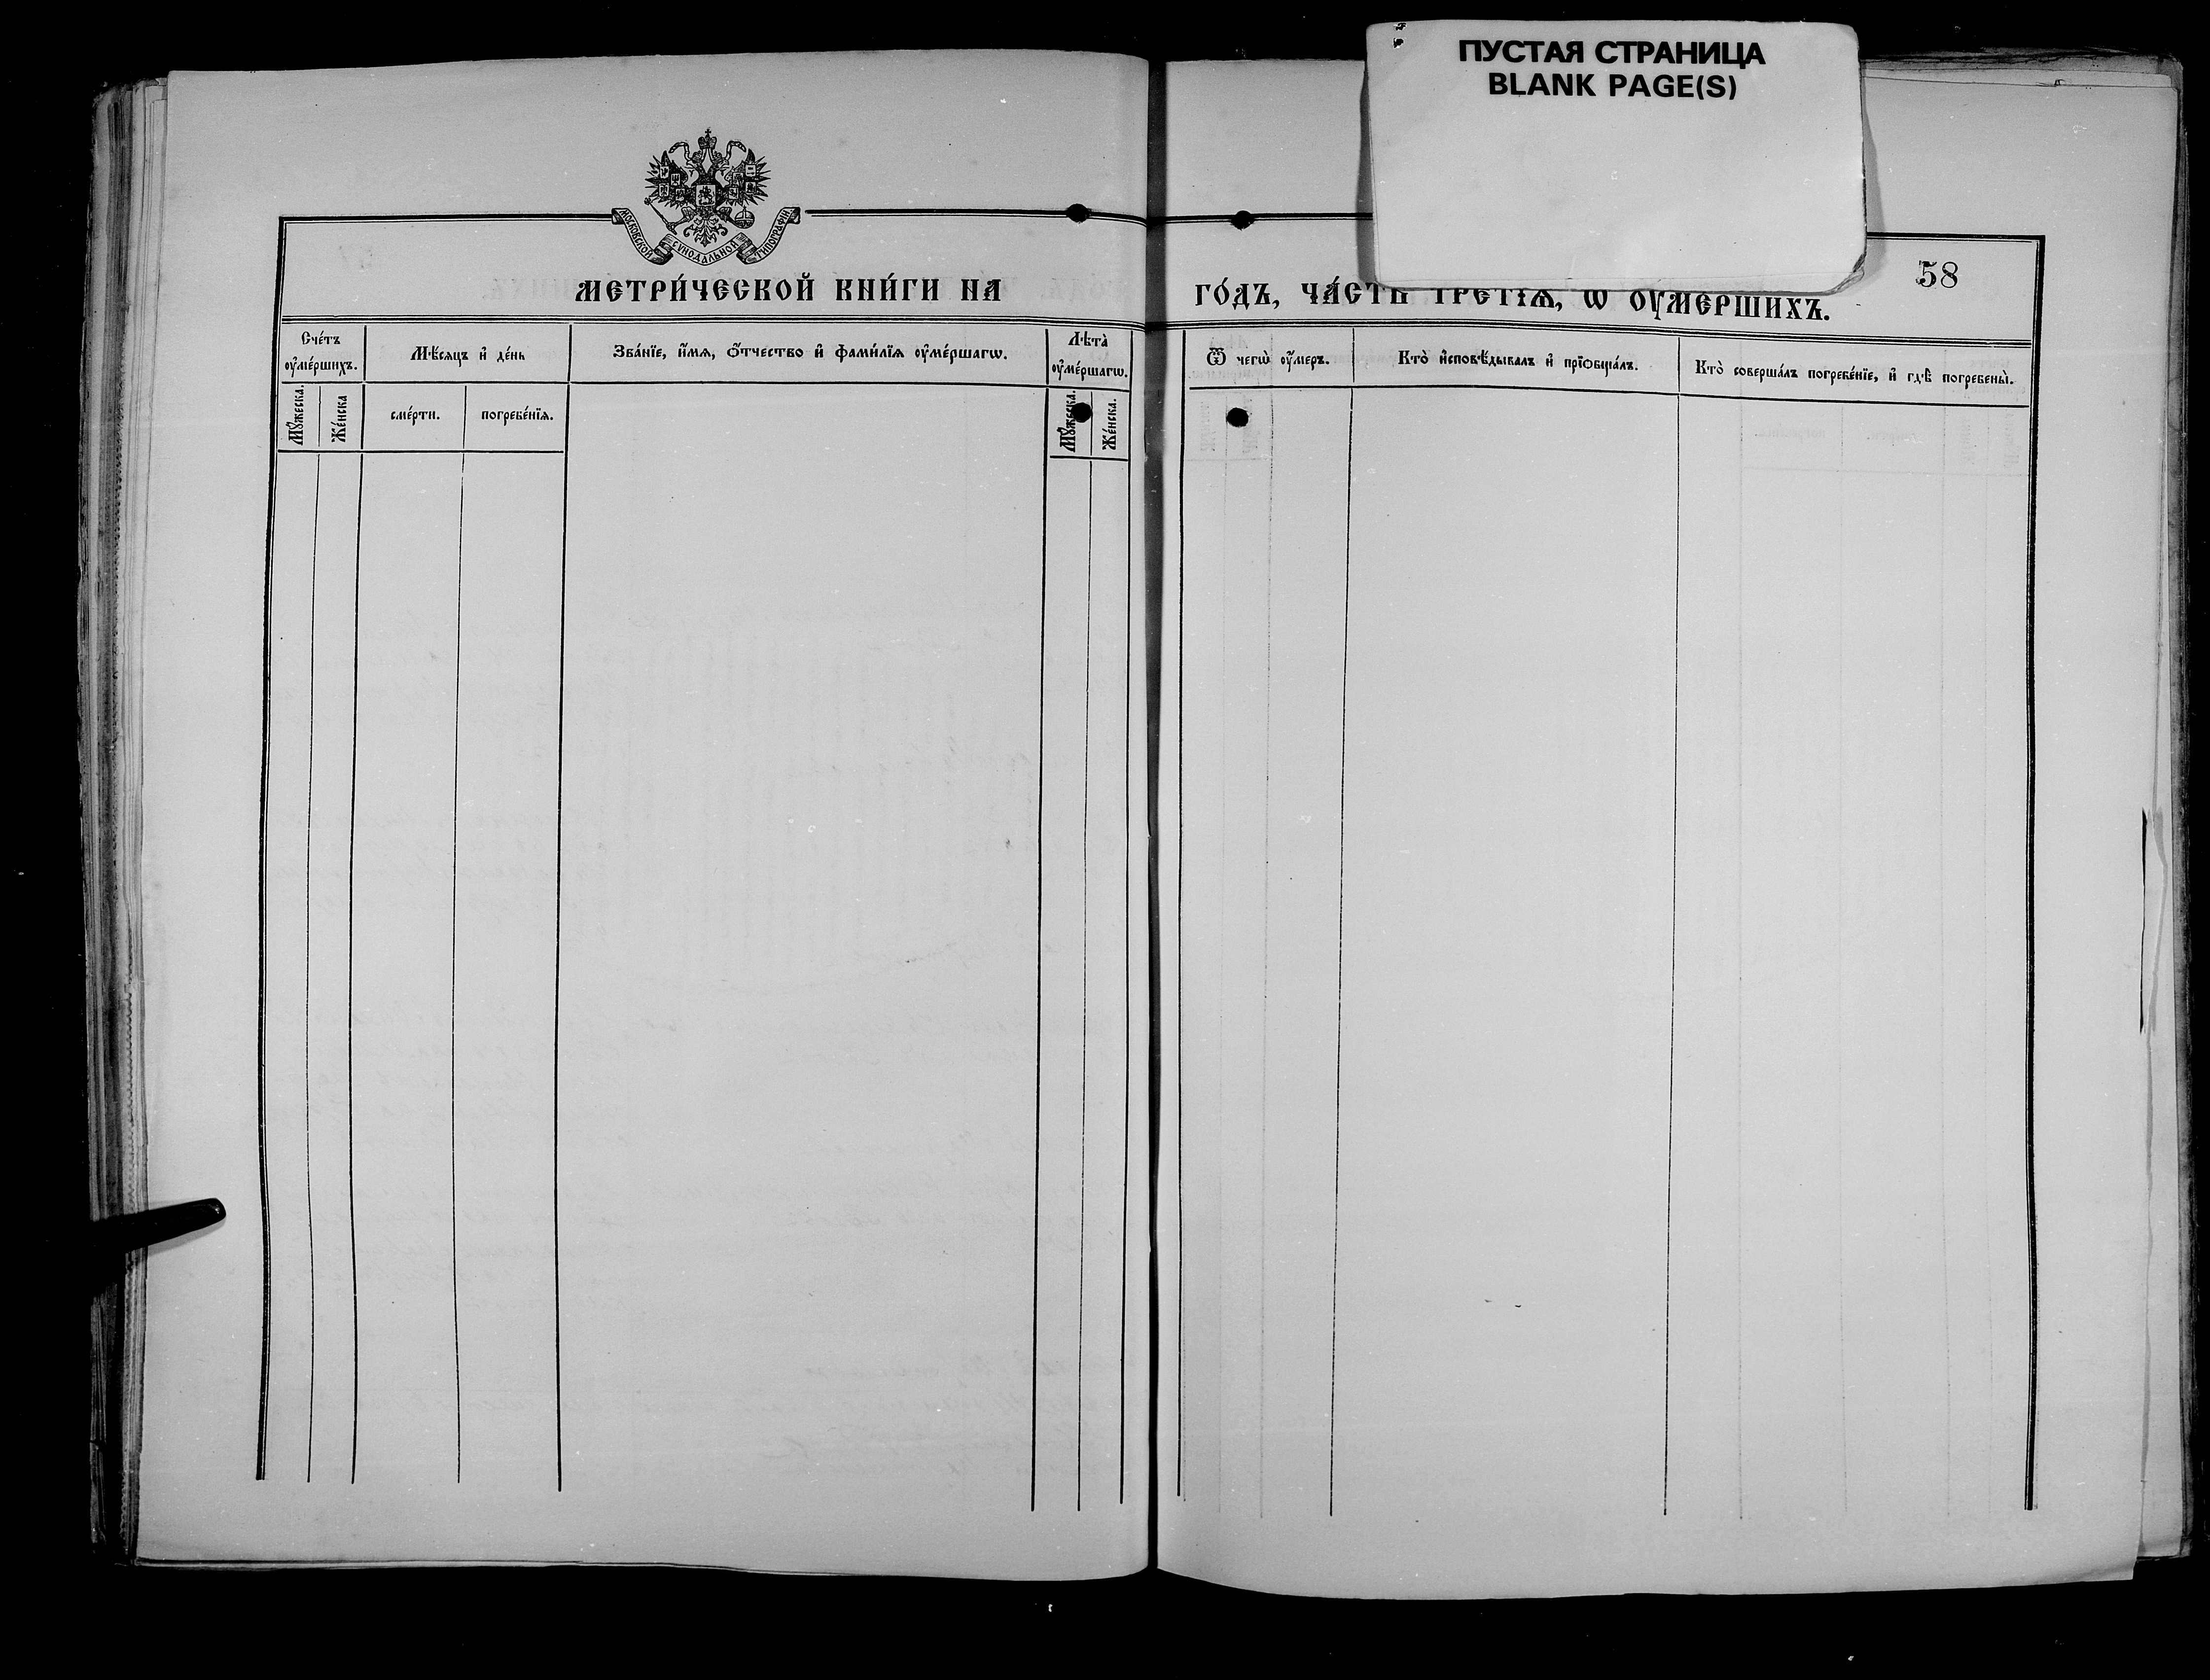 ПУСТАЯ СТРАНИЦА
BLANK PAGE(S)
МОСКОВСКОЙ СѴНОДАЛЬНОЙ ТИПОГРАФІИ
58
МЕТРИ́ЧЕСКОЙ КНИ́ГИ НА ГО́ДЪ, ЧА́СТЬ ТРЕТІѦ, Ѡ ОУМЕРШИХЪ.
Сче́тъ оу҆ме́ршихъ.
Мѣ́сяцъ и҆ де́нь
Зва́нїе, и҆́мя, ѻ҆́тчество и҆ фами́лїя оу҆ме́ршагѡ.
Лѣ́та̀ оу҆ме́ршагѡ.
Ѿ чегѡ̀ оу҆́меръ.
Кто̀ и҆сповѣ́дывалъ и҆ прїѻбща́лъ.
Кто̀ соверша́лъ погребе́нїе, и҆ гдѣ̀ погребены̀.
Мꙋ́жеска.
Же́нска
сме́рти.
погребе́нїя.
Мꙋ́жеска.
Же́нска.